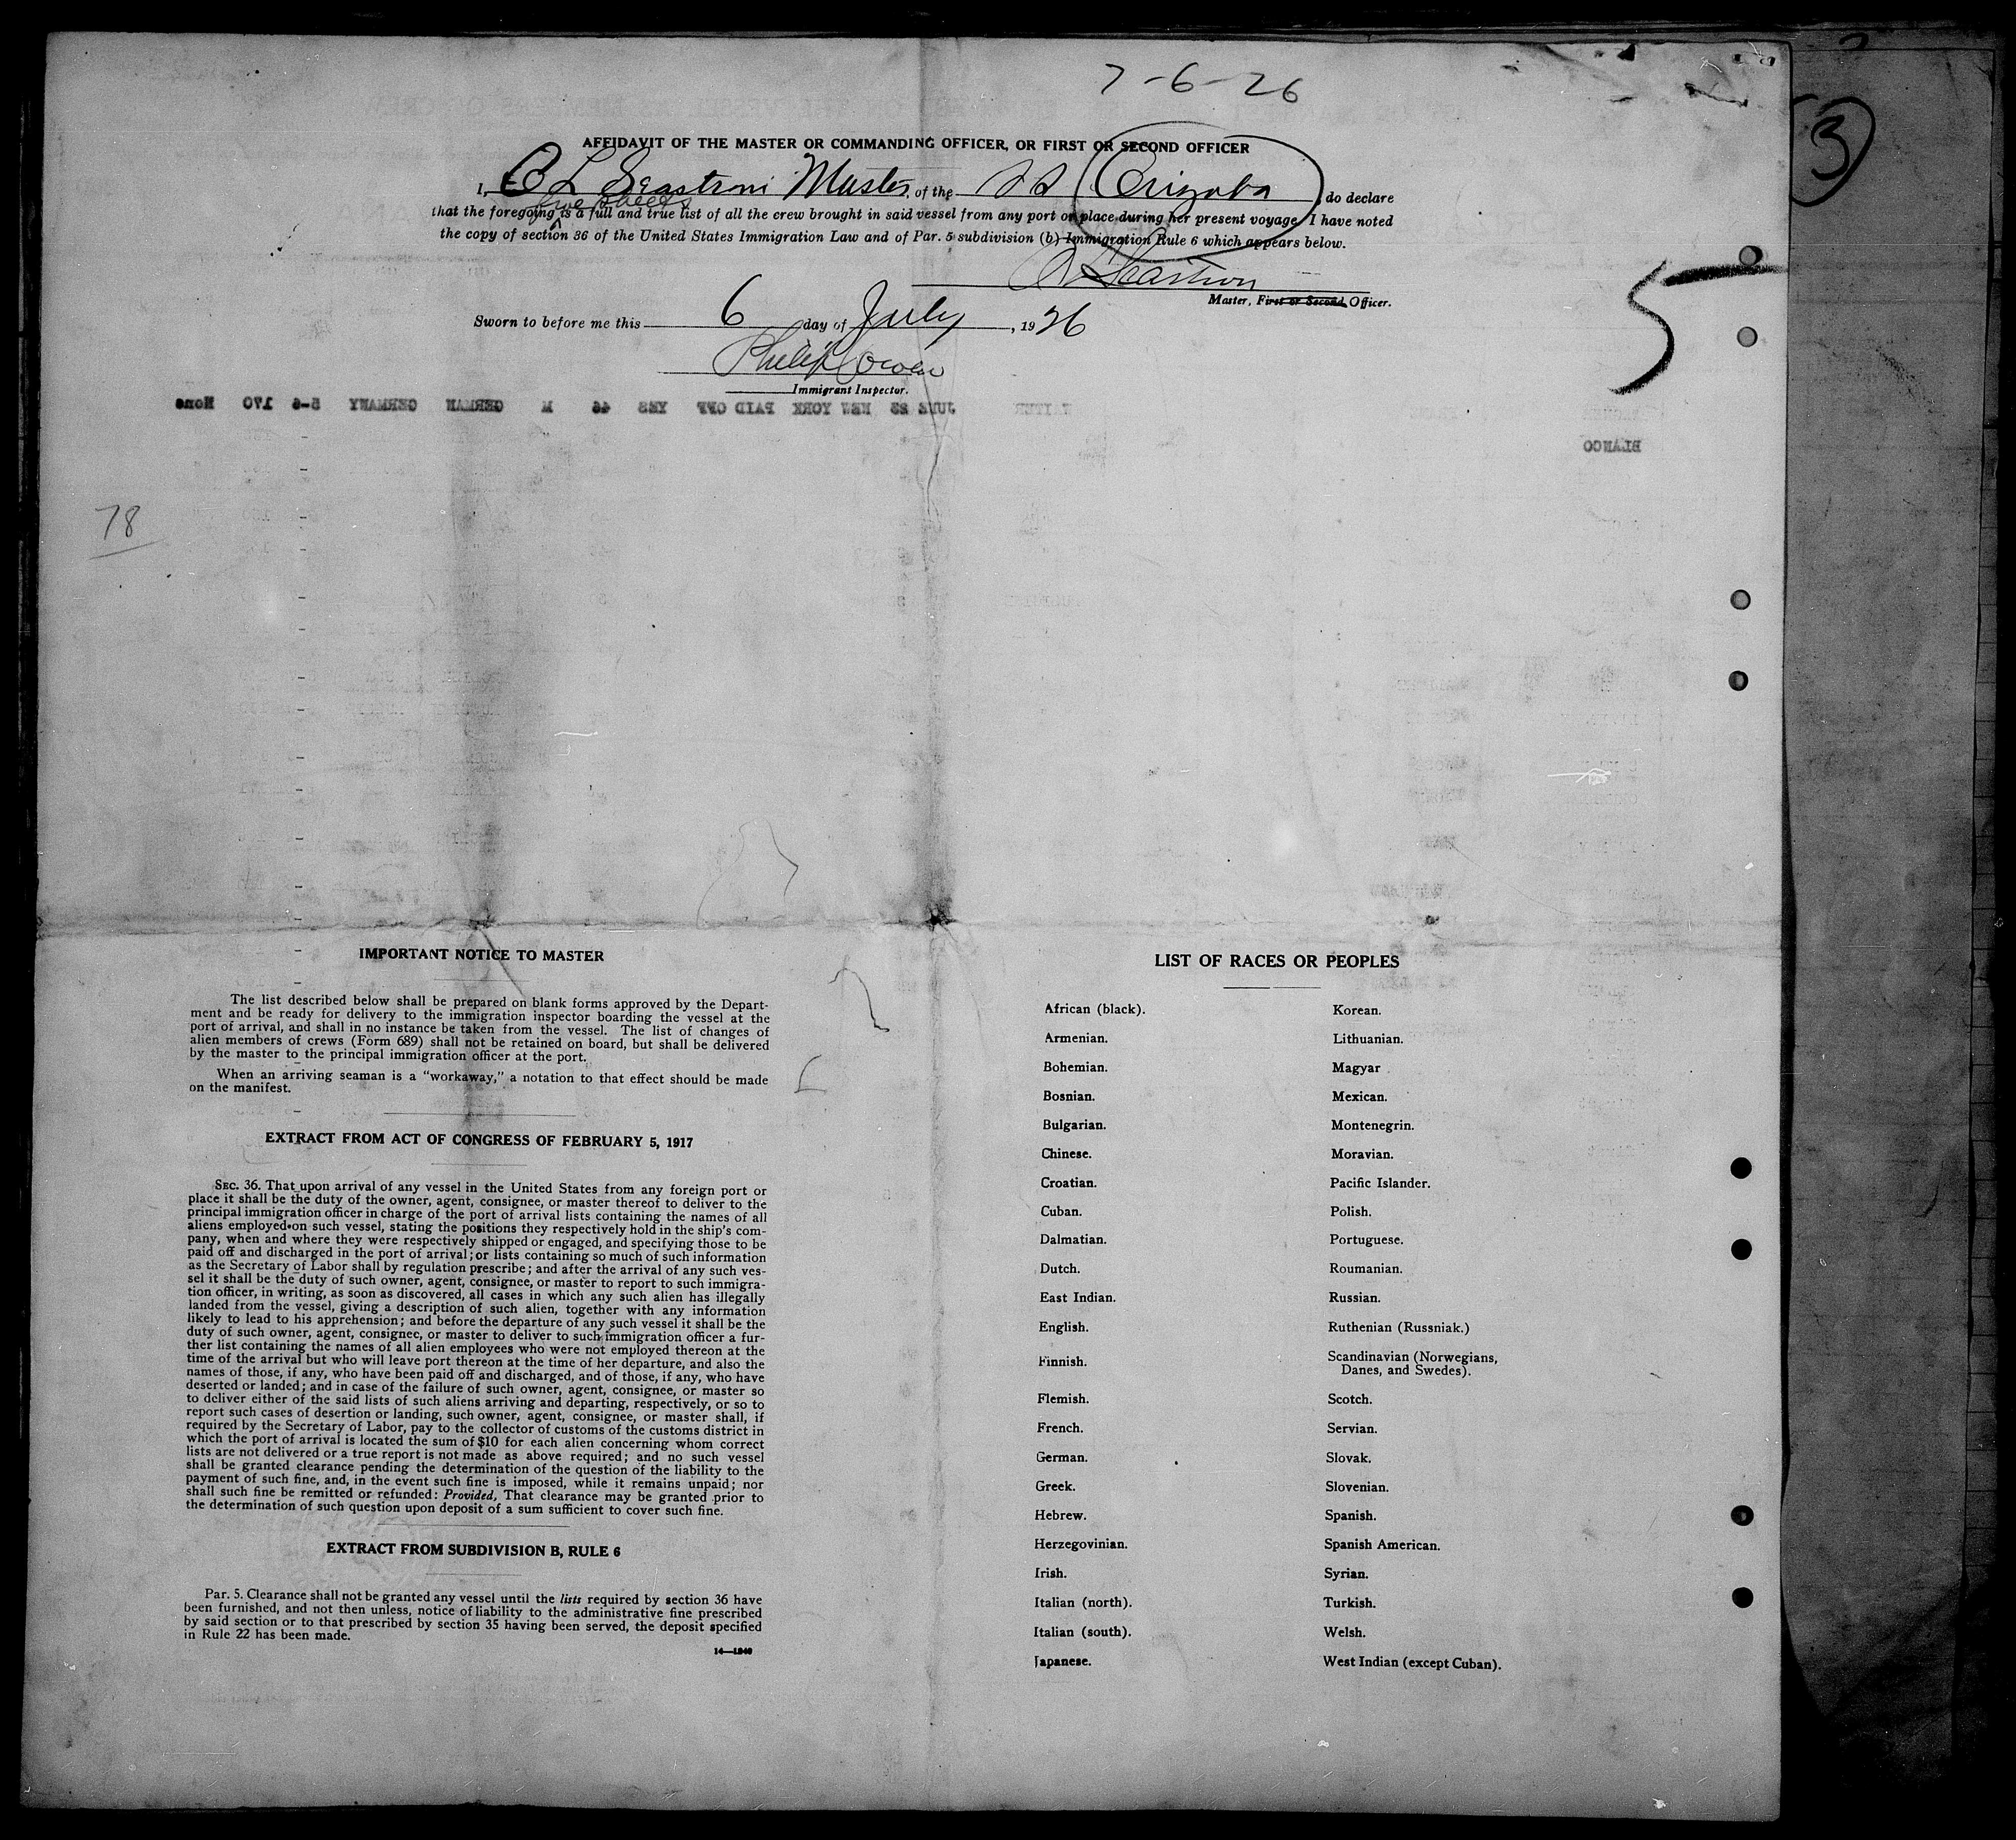 7-6-26
3
AFFIDAVIT OF THE MASTER OR COMMANDING OFFICER, OR FIRST OR SECOND OFFICER
I, Master, of the SS Orizaba, do declare
five sheets
that the foregoing is a full and true list of all the crew brought in said vessel from any port or place during her present voyage. I have noted
the copy of section 36 of the United States Immigration Law and of Par. 5 subdivision (b) Immigration Rule 6 which appears below.
Master, First or Second Officer.
5
Sworn to before me this 6 day of July, 1926
Philip Cowen
Immigrant Inspector.
JUNE 22 NEW YORK PAID OFF YES 46 M GERMAN GERMANY 5-6 170 None
BLANCO
78
IMPORTANT NOTICE TO MASTER
The list described below shall be prepared on blank forms approved by the Depart-
ment and be ready for delivery to the immigration inspector boarding the vessel at the
port of arrival, and shall in no instance be taken from the vessel. The list of changes of
alien members of crews (Form 689) shall not be retained on board, but shall be delivered
by the master to the principal immigration officer at the port.
When an arriving seaman is a "workaway," a notation to that effect should be made
on the manifest.
EXTRACT FROM ACT OF CONGRESS OF FEBRUARY 5, 1917
SEC. 36. That upon arrival of any vessel in the United States from any foreign port or
place it shall be the duty of the owner, agent, consignee, or master thereof to deliver to the
principal immigration officer in charge of the port of arrival lists containing the names of all
aliens employed on such vessel, stating the positions they respectively hold in the ship's com-
pany, when and where they were respectively shipped or engaged, and specifying those to be
paid off and discharged in the port of arrival; or lists containing so much of such information
as the Secretary of Labor shall by regulation prescribe; and after the arrival of any such ves-
sel it shall be the duty of such owner, agent, consignee, or master to report to such immigra-
tion officer, in writing, as soon as discovered, all cases in which any such alien has illegally
landed from the vessel, giving a description of such alien, together with any information
likely to lead to his apprehension; and before the departure of any such vessel it shall be the
duty of such owner, agent, consignee, or master to deliver to such immigration officer a fur-
ther list containing the names of all alien employees who were not employed thereon at the
time of the arrival but who will leave port thereon at the time of her departure, and also the
names of those, if any, who have been paid off and discharged, and of those, if any, who have
deserted or landed; and in case of the failure of such owner, agent, consignee, or master so
to deliver either of the said lists of such aliens arriving and departing, respectively, or so to
report such cases of desertion or landing, such owner, agent, consignee, or master shall, if
required by the Secretary of Labor, pay to the collector of customs of the customs district in
which the port of arrival is located the sum of $10 for each alien concerning whom correct
lists are not delivered or a true report is not made as above required; and no such vessel
shall be granted clearance pending the determination of the question of the liability to the
payment of such fine, and, in the event such fine is imposed, while it remains unpaid; nor
shall such fine be remitted or refunded: Provided, That clearance may be granted prior to
the determination of such question upon deposit of a sum sufficient to cover such fine.
EXTRACT FROM SUBDIVISION B, RULE 6
Par. 5. Clearance shall not be granted any vessel until the lists required by section 36 have
been furnished, and not then unless, notice of liability to the administrative fine prescribed
by said section or to that prescribed by section 35 having been served, the deposit specified
in Rule 22 has been made.
14—1240
LIST OF RACES OR PEOPLES
African (black).
Armenian.
Bohemian.
Bosnian.
Bulgarian.
Chinese.
Croatian.
Cuban.
Dalmatian.
Dutch.
East Indian.
English.
Finnish.
Flemish.
French.
German.
Greek.
Hebrew.
Herzegovinian.
Irish.
Italian (north).
Italian (south).
Japanese.
Korean.
Lithuanian.
Magyar
Mexican.
Montenegrin.
Moravian.
Pacific Islander.
Polish.
Portuguese.
Roumanian.
Russian.
Ruthenian (Russniak.)
Scandinavian (Norwegians,
Danes, and Swedes).
Scotch.
Servian.
Slovak.
Slovenian.
Spanish.
Spanish American.
Syrian.
Turkish.
Welsh.
West Indian (except Cuban).